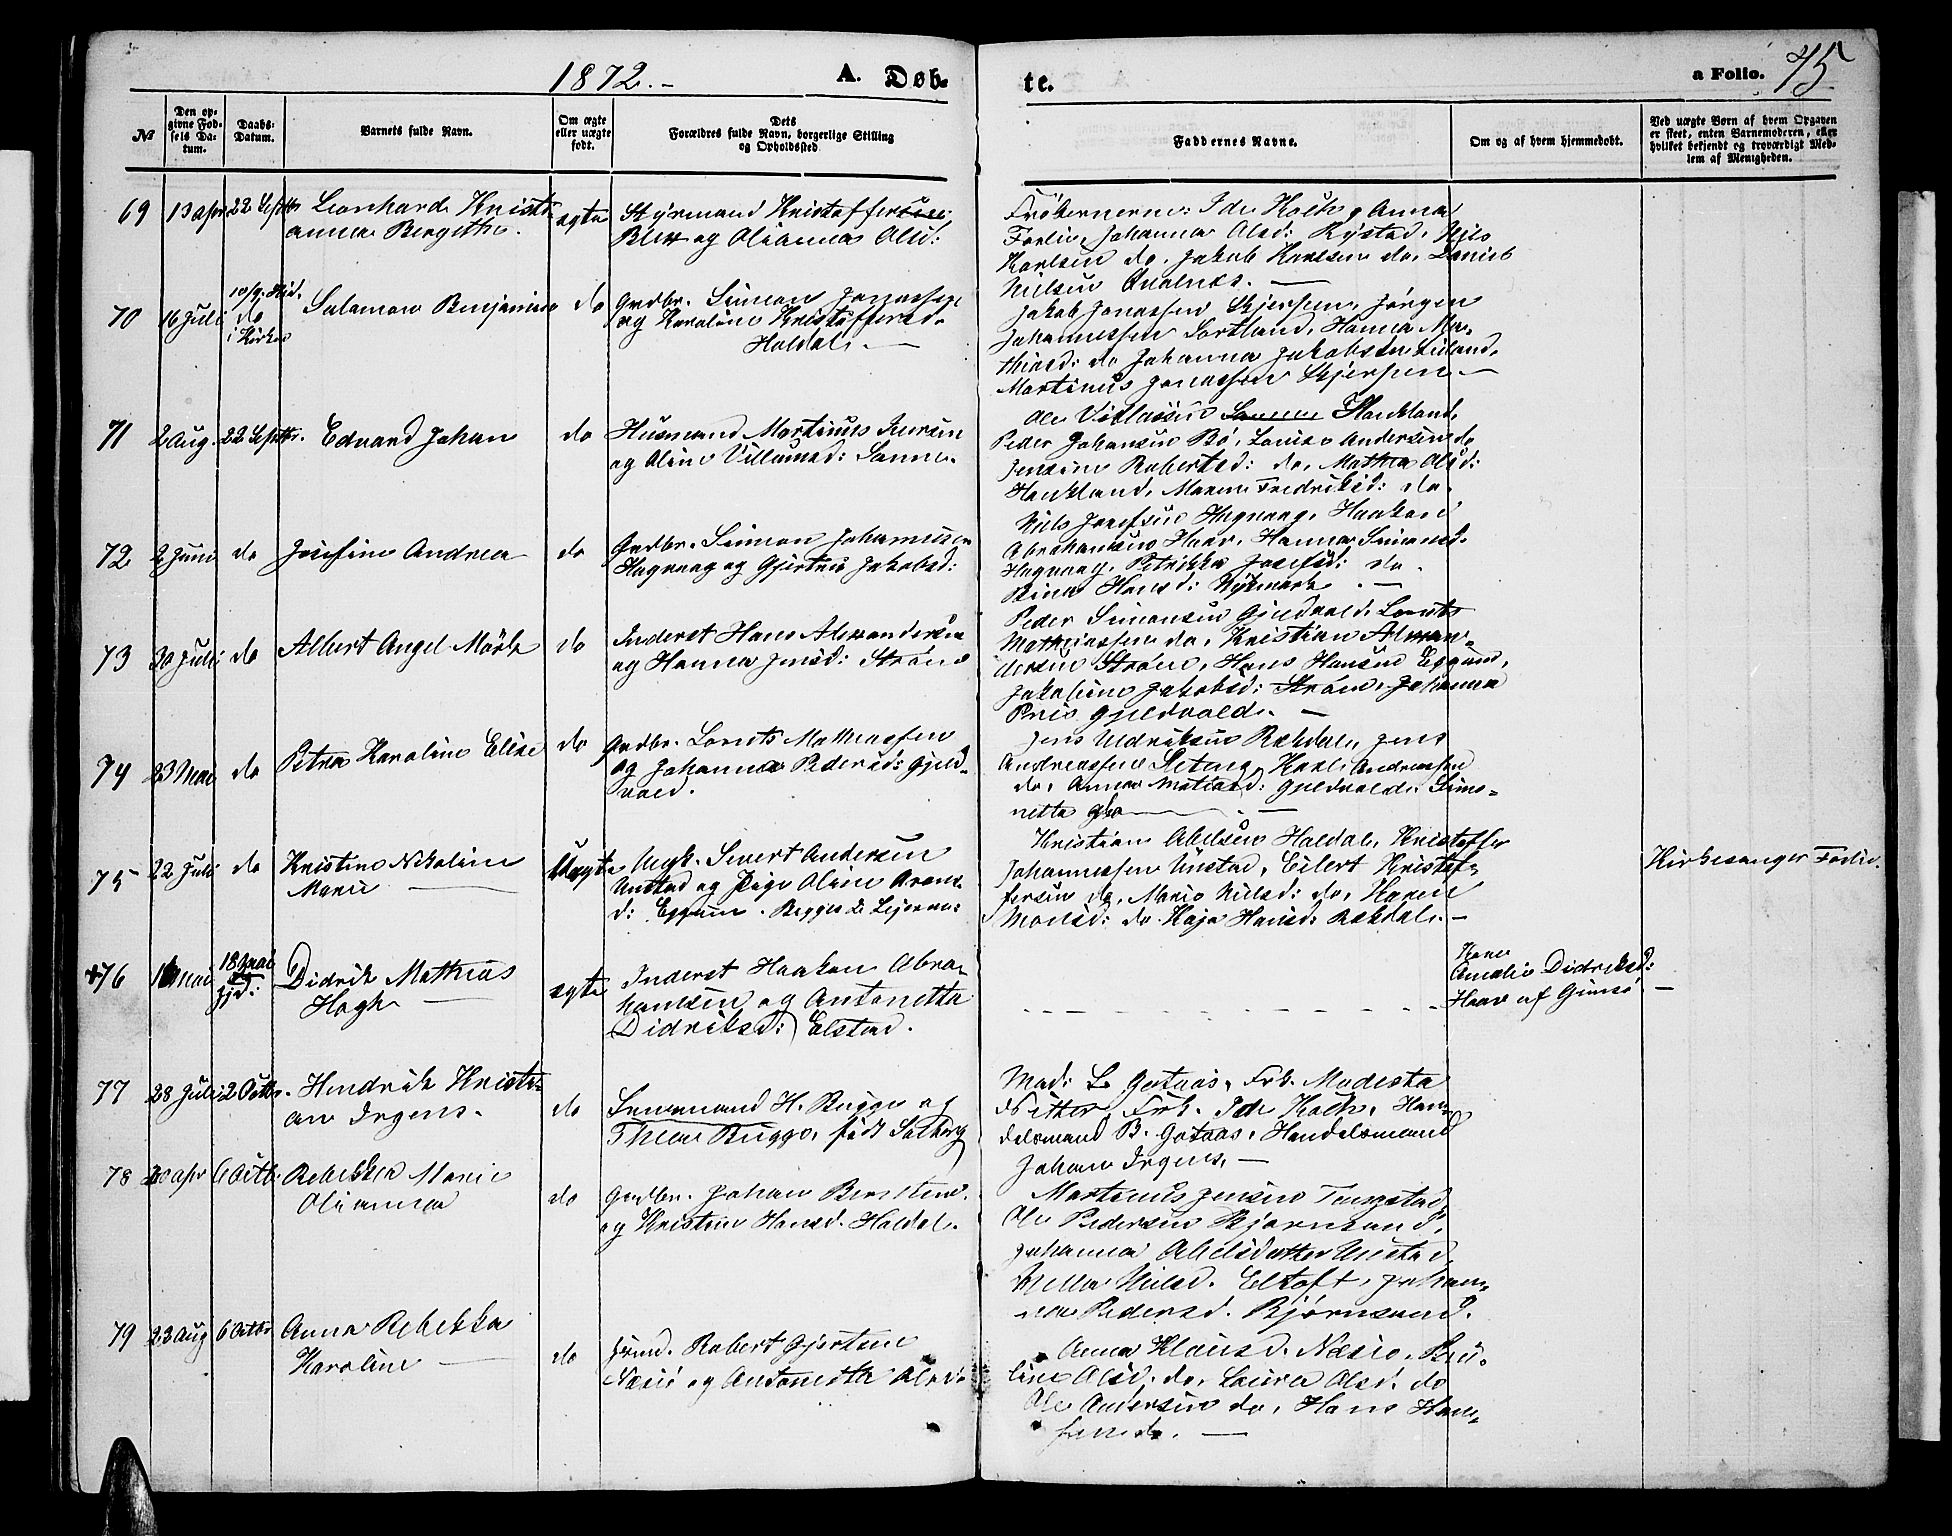 1872.-
A. Døb-
te.
a Folio. 75.
№
Den op-
givne Fød-
sels Da-
tum.
Daabs-
Datum.
Barnets fulde Navn.
Om ægte
eller uægte
født.
Dets
Forældres fulde Navn, borgerlige Stilling
og Opholdssted.
Faddernes Navne.
Om og af hvem hjemmedøbt.
Ved uægte Børn af hvem Opgaven
er skeet, enten Barnemoderen, eller
hvilket bekjendt og troværdigt Med-
lem af Menigheden.
69 13 apr 22 Septbr Leonharde Kristi-
anna Bergithe.
ægte
Styrmand Kristoffer
og Olianna Olsd:
Frøknerne: Ida Koch, Anna
Forlie, Johanna Olsd: Rystad, Nils
Karlsen do, Jakob Karlsen do, Daniel
Nielsen
70 16 Juli 10/9. Hd.
do
i Kirken
Salamon Benjamin do
Grdbr. Simon Jonassen
og Karoline Kristoffersd.
Haldal. —
Jakob Jonassen Skjerpen, Jørgen
Johannessen Sortland, Hanna Ma-
thiasd: do Johanna Jakobsen Liland,
Martinus Jonassen Skjerpen —
71 2 Aug. 22 Septbr. Edvard Johan do
Husmand Martinus Iversen
og Oline Villumsd: Sanne.
Ole Haukland,
Peder Johansen Bø, Lovise Andersen do
Jensine Robertsd: do, Mathea Olsd:
Haukland, Maren Fredriksd: do.
72 2 Juni do Josefine Andrea do
Grdbr. Simon Johannesen
Hagvaag og Gjertrud Jakobsd:
Niels Josefsen Hagvaag, Haakon
Abrahamsen Haar, Hanna Simonsd.
Hagvaag, Petrikke Josefsd: do.
Hansd: Nykmark. —
73 30 Juli do Albert Angel Mörk do
Inderst Hans Alexandersen
og Hanna Jensd: Strøm
Peder Simonsen Gjeldvold, Lorents
Mathiassen do, Kristian Alexan-
dersen Strøm, Hans Hansen Eggum,
Jakobine Jakobsd: Strøm, Johanna
Gjeldvold. —
74 23 Mai do Petra Karoline Elise do
Grdbr. Lorents Mathiassen
og Johanna Pedersd: Gjeld-
vold.
Jens Uldriksen Rækdal, Jens
Andreassen Karl Andreassen
do, Anna Gjeldvold, Simo-
netta
75 22 Juli do Kristine Nikoline
Marie —
Uægte
Ungk. Sivert Andersen
Unstad og Pige Oline
d: Eggum. Begges
Kristian Abelsen Haldal, Kristoffer
Johannessen Unstad, Eilert Kristof-
fersen do, Marie Nilsd: do, Karen
do Kaja Hansd. Rækdal. —
Kirkesanger Forlie.
+76 Mai 18 Mai
Gjd:
Didrik Mathias
Hagh —
ægte
Inderst Haakon Abra-
hamsen og Antonetta
Didriksd: Elstad.
Kone
Amalie Didriksd:
Haar af Gimsø —
77 28 Juli 2 Octbr. Hendrik Kristi-
an Irgens.
do
H. Bugge og
Thea Bugge, født
Mad: L. Gotaas, Frk. Modesta
Frk. Ida Koch, Han-
delsmand B. Gotaas, Handelsmand
Johan Irgens, —
78 20 apr 6 Octb. Rebekka Marie
Olianna
do
Grdbr. Johan
og Kristine Hansd. Haldal.
Martinus Jensen Tangstad,
Ole Pedersen Bjørnsand,
Johanna Abelsdatter Unstad,
Nilsd. Eltoft, Johan-
na Pedersd. Bjørnsand.
79 23 Aug 6 Octbr Anna Rebekka
Karoline —
do
Robert Gjertsen
og Antonetta Olsd:
Anna Klausd. Pau-
line Olsd. do, Laura Olsd. do
Ole Andersen do, Hans Han-
sen do. —